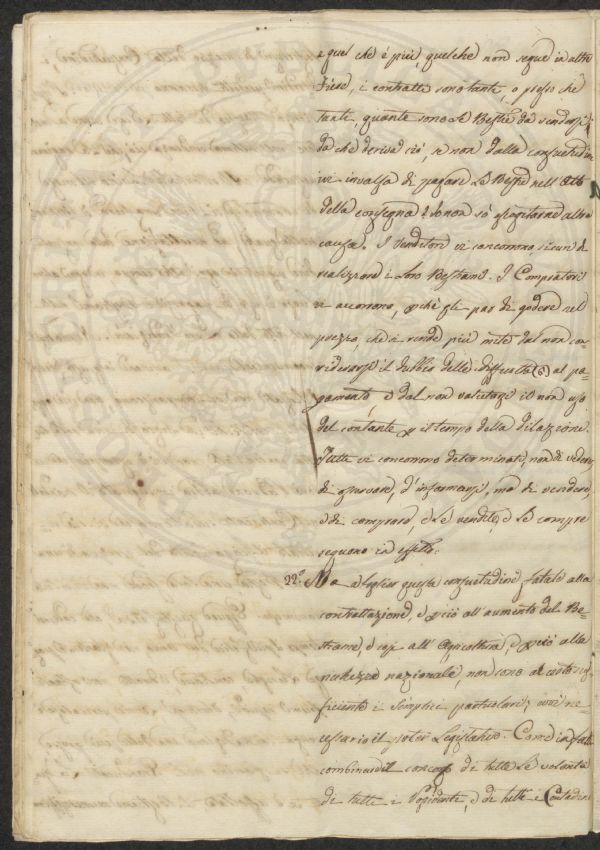 e quel che è più, quelche non segue in altre
Fiere, i contratti sono tanti, o presso che
tanti, quante sono le Bestie da vendersi.
da che deriva ciò, se non dalla consuetudine
ivi invalsa di pagare le Bestie nell'atto
della consegna? Io non sò assegnarne altra
causa. I Venditori vi concorrono, sicuri di
realizzare i loro Bestiami. I Compratori
vi accorrono, perchè gli par di godere nel
prezzo, che si rende più mite dal non con=
siderarsi il dubbio delle difficoltà (6) al pa=
gamento e dal non valutarsi il non uso
del contante per il tempo della dilazione.
Tutti vi concorrono determinati, non di vedere
di osservare, d'informarsi, ma di vendere,
e di comprare, e le vendite, e le compre
seguono in effetto.
22.° Ma a togliere questa consuetudine fatale alla
contrattazione, e perciò all'aumento del Be=
stiame, e così all'Agricoltura, e perciò alla
ricchezza nazionale, non sono al certo suf=
ficienti i semplici particolari; ci vi è ne=
cessario il poter Legislativo. Come infatti
combinare il concorso di tutte le volontà
di tutti i Possidenti, e di tutti i Contadini